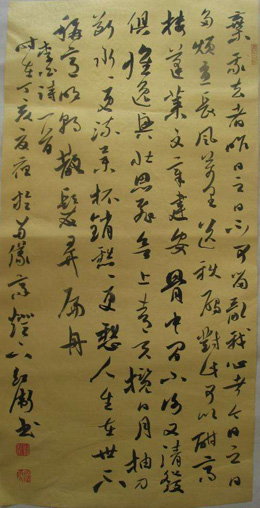 棄我去者昨日之日不可留亂我心者今日之日
多煩憂長風萬里送秋雁對此可以酣高
樓蓬萊文章建安骨中間小謝又清發
俱懷逸興壯思飛欲上青天攬日月抽刀
斷水々更流舉杯銷愁々更愁人生在世不
稱意明朝散髮弄扁舟
李白詩一首
时在丁亥夏夜於 燈下 書